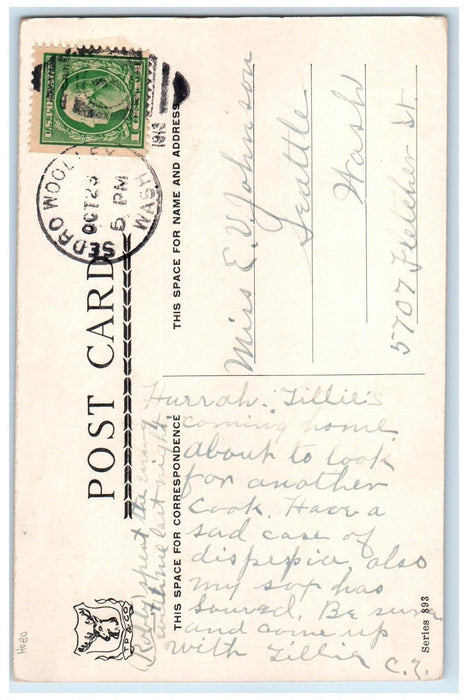 POST CARD
THIS SPACE FOR CORRESPONDENCE
THIS SPACE FOR NAME AND ADDRESS
SEDRO WOOLLEY
WASH
OCT 29
5 PM
1913
Miss E. V. Johnson
Seattle
Wash
5707 Fletcher St.
Hurrah. Tillie's
coming home
about to look
for another
cook. Have a
sad case of
dispepia, also
my sox has
soured. Be sure
and come up
with Tillie
C. Z.
spent the evening
with me last night
T.P. & CO.
Series 893
HOBO